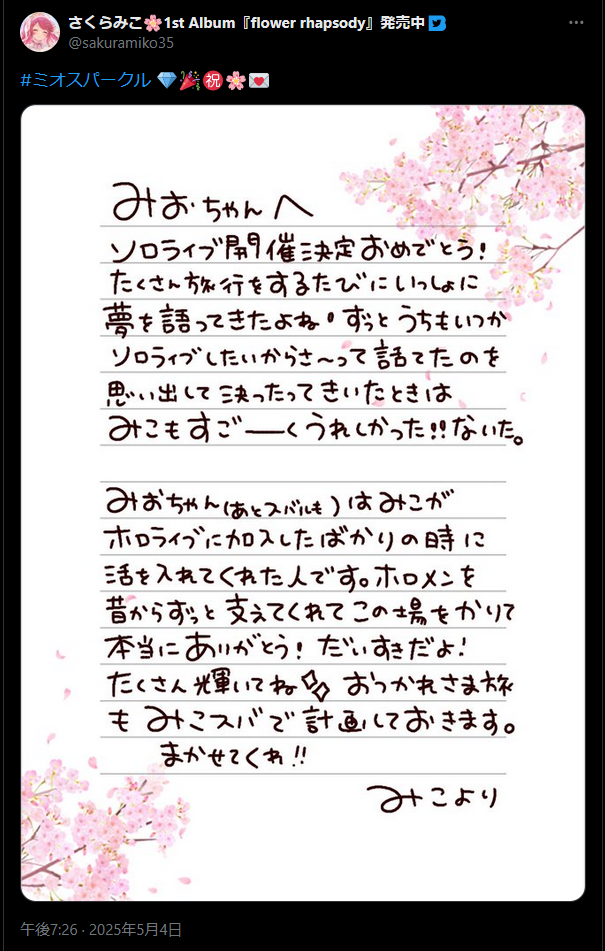 さくらみこ🌸1st Album『flower rhapsody』発売中
@sakuramiko35
#ミオスパークル 💎🎉㊗️🌸💌
みおちゃんへ
ソロライブ開催決定おめでとう!
たくさん旅行をするたびにいっしょに
夢を語ってきたよね!ずっとうちもいつか
ソロライブしたいからさ〜って話てたのを
思い出して決ったってきいたときは
みこもすごーーくうれしかった!!ないた。
みおちゃん(あとスバルも)はみこが
ホロライブに加入したばかりの時に
活を入れてくれた人です。ホロメンを
昔からずっと支えてくれてこの場をかりて
本当にありがとう! だいすきだよ!
たくさん輝いてね✨ おつかれさま旅
も みこスバで計画しておきます。
まかせてくれ!!
みこより
午後7:26 · 2025年5月4日